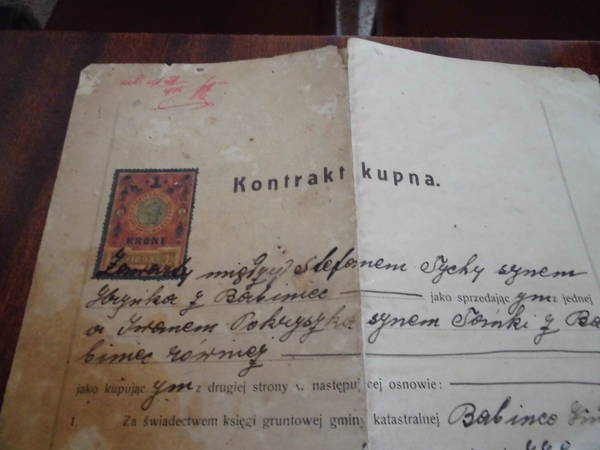 Kontrakt kupna.
1
KRONE
Zawarty między Stefanem Tychy synem
Hryńka z Babiniec jako sprzedającym z jednej
a Iwanem Pokryszka synem Tomki z Ba
biniec również
jako kupującym z drugiej strony w następującej osnowie:
1. Za świadectwem księgi gruntowej gminy katastralnej Babince